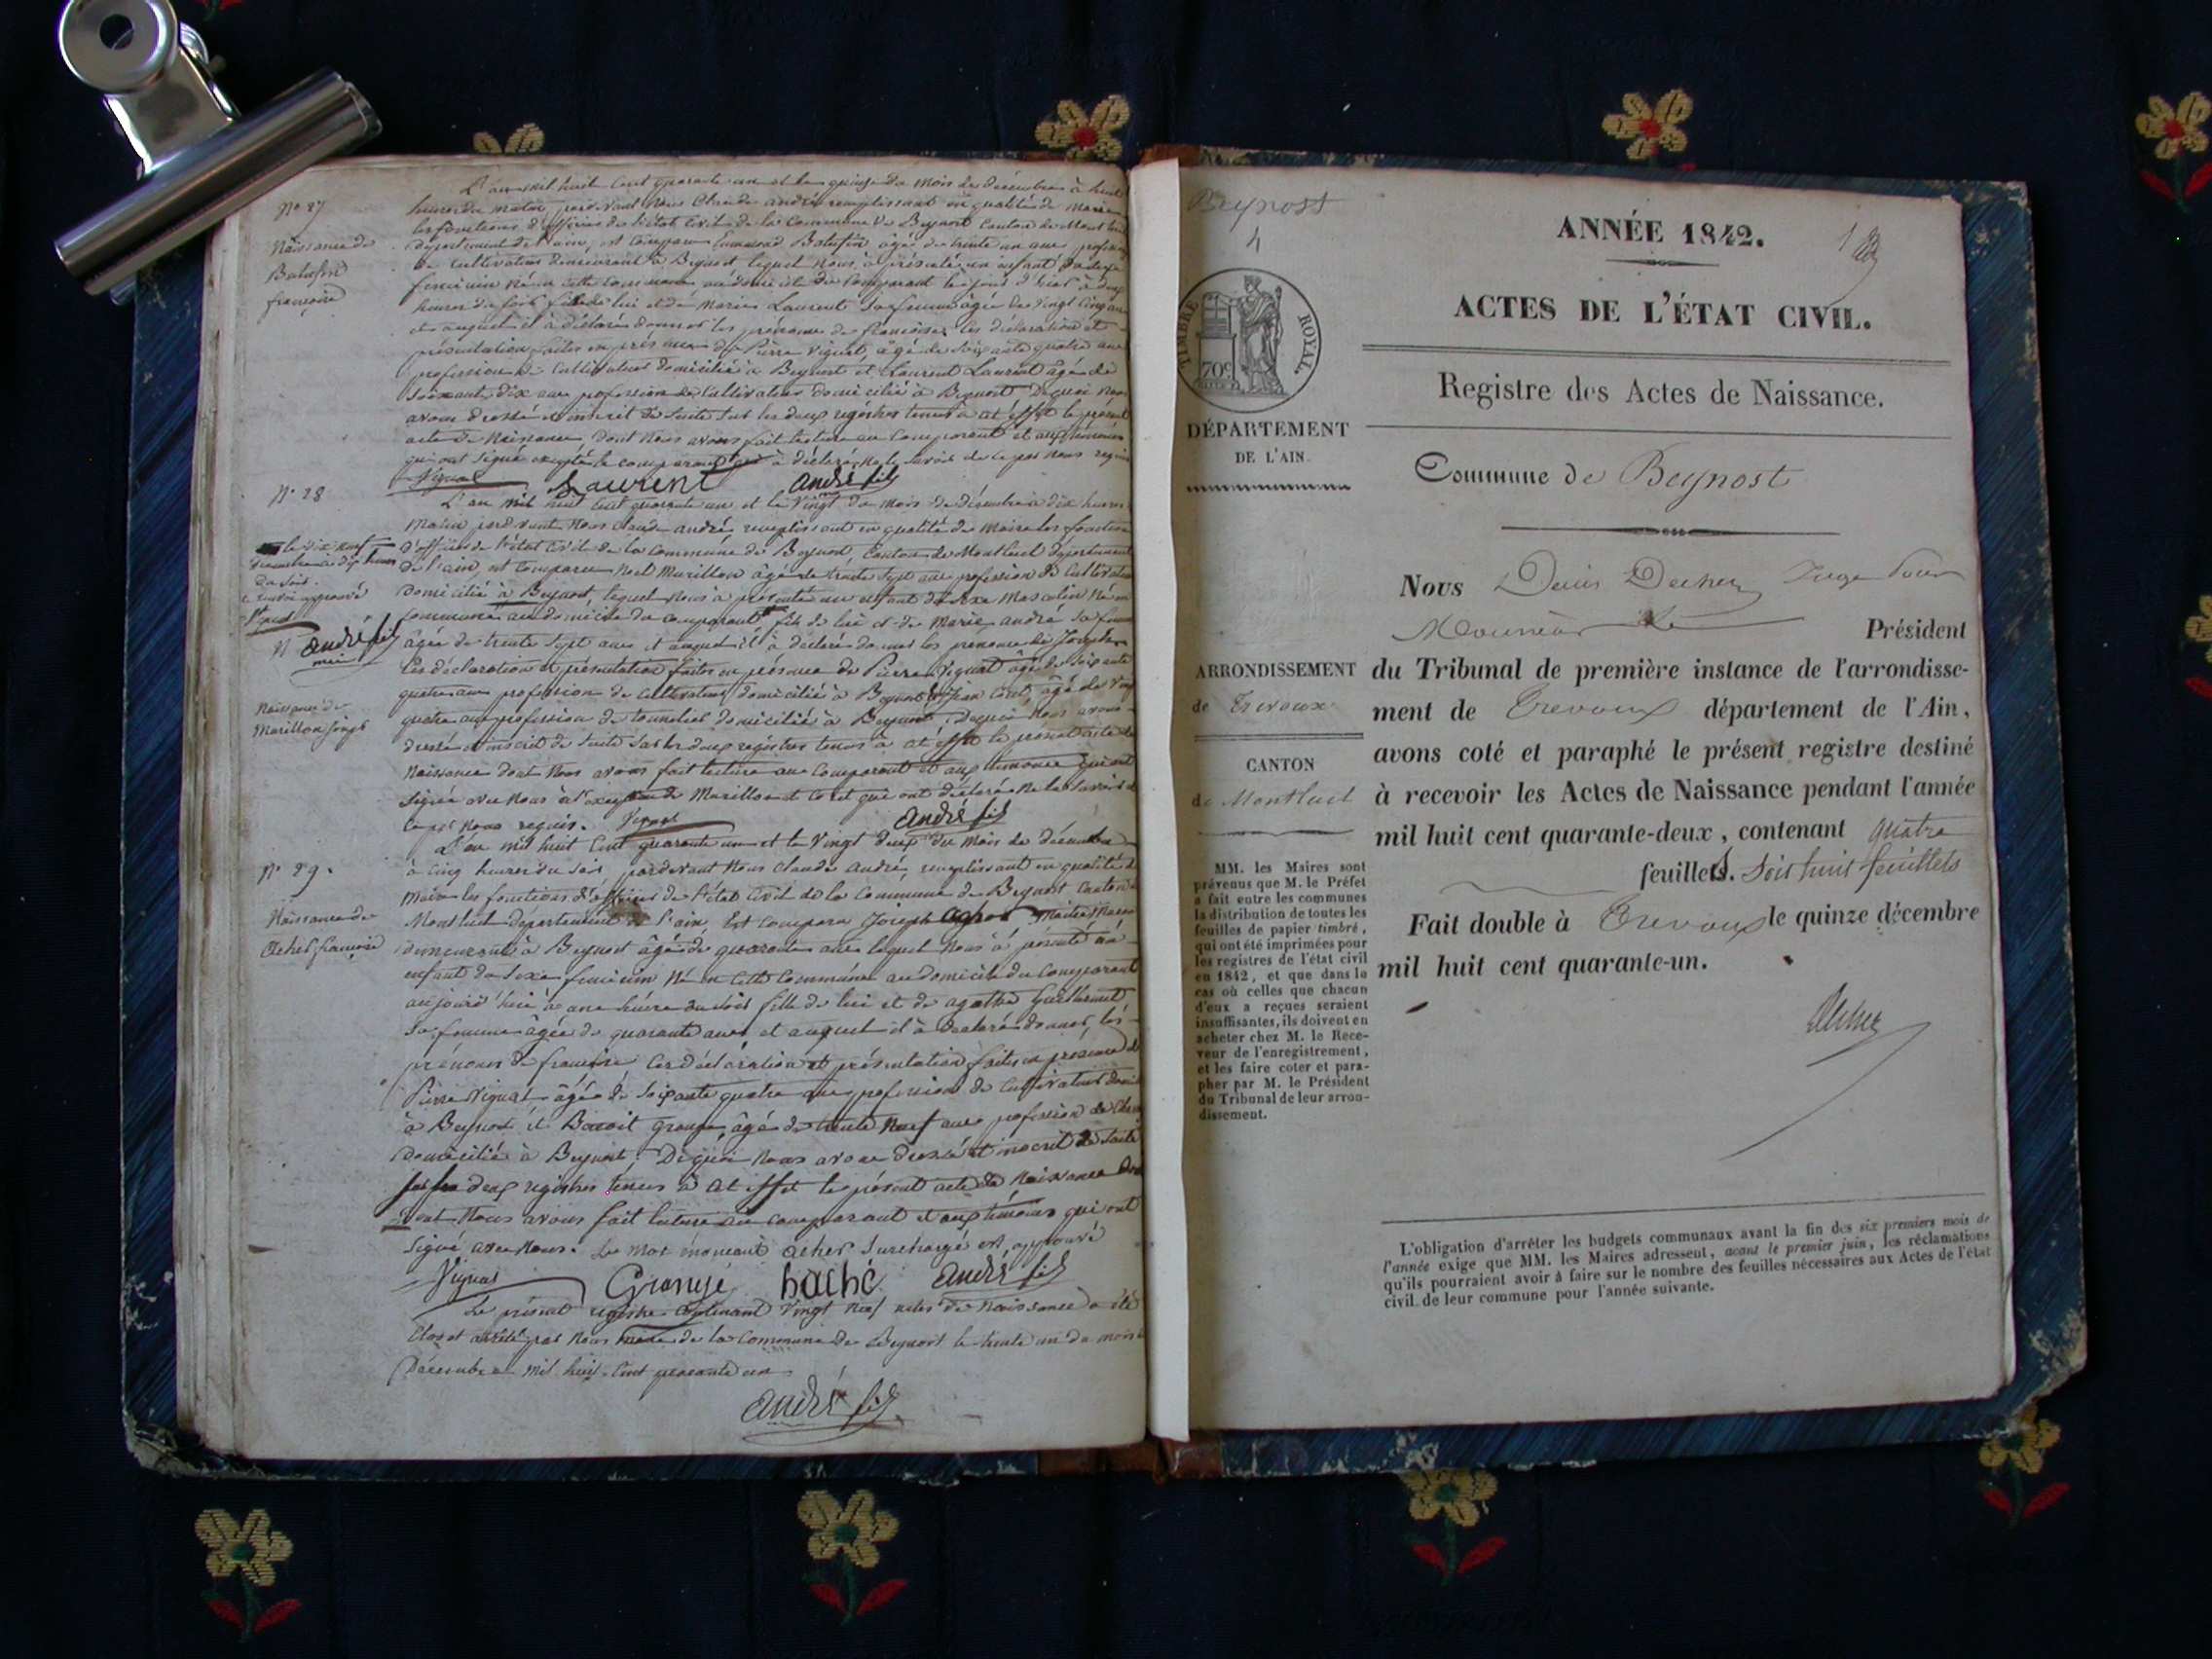 N° 27
Naissance de
Balufin
françoise
L'an mil huit cent quarante un et le quinze du mois de décembre à huit
heures du matin pardevant nous Claude andré remplissant en qualité de Maire
les fonctions d'officier de l'état civil de la Commune de Beynost Canton de Mont
département de l'ain, est comparu Balufin âgé de trente un ans profession
de cultivateur demeurant à Beynost lequel nous à présenté un enfant du sexe
féminin né en cette commune au domicile du comparant le jour d'hier à
heures du soir fille de lui et de Marie Laurent sa femme âgée de vingt cinq ans
et auquel il à déclaré donner les prénoms de françoise. Ces déclaration et
présentation faites en présence de Pierre Vignat, âgé de soixante quatre ans
profession de cultivateur domicilié à Beynost et Laurent Laurent âgé de
soixante dix ans profession de cultivateur domicilié à Beynost Dequoi nous
avons dressé et inscrit de suite sur les deux registres tenus à cet effet le présent
acte de Naissance, dont nous avons fait lecture au comparant et aux témoins
qui ont signé excepté le comparant qui à déclaré ne le savoir de ce par nous requis
Vignat Laurent André fils
N° 28
le dix neuf
décembre à dix heures
du soir.
renvoi approuvé
Vignat
N André fils
maire
Naissance de
Marillon Joseph
L'an mil huit cent quarante un et le vingt du mois de décembre à dix heures
Matin pardevant nous claude andré, remplissant en qualité de maire les fonctions
d'officier de l'état civil de la commune de Beynost, Canton de Montluel département
de l'ain est comparu Noel Marillon âgé de trente sept ans profession de cultivateur
domicilié à Beynost, lequel nous à présenté un enfant du sexe Masculin Né en
commune au domicile du comparant fils de lui et de Marie andré sa femme
âgée de trente sept ans et auquel il à déclaré donner les prénoms de Joseph
Ces déclaration et présentation faites en présence de Pierre Vignat âgé de soixante
quatre ans profession de cultivateur domicilié à Beynost et Jean Coret, âgé de vingt
quatre ans profession de tonnelier domicilié à Beynost. Dequoi nous avons
dressé et inscrit de suite sur les deux registres tenus à cet effet le présent acte de
Naissance dont nous avons fait lecture au comparant et aux témoins qui ont
signé avec nous à l'exception de Marillon et Coret qui ont déclaré ne le savoir de
ce par nous requis. Vignat André fils
N° 29.
Naissance de
Acher françoise
L'an mil huit cent quarante un et le vingt deux du mois de décembre
à cinq heures du soir, pardevant nous claude andré, remplissant en qualité de
Maire les fonctions d'officier de l'état civil de la Commune de Beynost Canton de
Montluel département de l'ain, Est comparu Joseph acher Maître Maçon
demeurant à Beynost âgé de quarante ans lequel nous à présenté un
enfant du sexe féminin Né en cette commune au domicile du comparant
aujourd'hui à une heure du soir fille de lui et de agathe
sa femme âgée de quarante ans et auquel il à déclaré donner les
prénoms de françoise Ces déclaration et présentation faites en présence de
Pierre Vignat âgé de soixante quatre ans profession de cultivateur domicilié
à Beynost et Benoit Grange, âgé de trente neuf ans profession de
domicilié à Beynost; Dequoi nous avons dressé et inscrit de suite
sur les deux registres tenus à cet effet le présent acte de Naissance
dont Nous avons fait lecture au comparant et aux témoins qui ont
signé avec nous. Le mot énoncant acher surchargé est approuvé
Vignat Grangé haché André fils
Le présent registre contenant vingt neuf actes de naissance a été
Clos et arrêté par nous maire de la commune de Beynost le trente un du mois de
Décembre mil huit cent quarante un
André fils
Beynost
4
TIMBRE ROYAL.
70c
DÉPARTEMENT
DE L'AIN.
ARRONDISSEMENT
de Trevoux
CANTON
de Montluel
MM. les Maires sont
prévenus que M. le Préfet
a fait entre les communes
la distribution de toutes les
feuilles de papier timbré,
qui ont été imprimées pour
les registres de l'état civil
en 1842, et que dans le
cas où celles que chacun
d'eux a reçues seraient
insuffisantes, ils doivent en
acheter chez M. le Rece-
veur de l'enregistrement,
et les faire coter et para-
pher par M. le Président
du Tribunal de leur arron-
dissement.
ANNÉE 1842.
ACTES DE L'ÉTAT CIVIL.
Registre des Actes de Naissance.
Commune de Beynost
Nous Denis Decher Juge pour
Monsieur le Président
du Tribunal de première instance de l'arrondisse-
ment de Trevoux département de l'Ain,
avons coté et paraphé le présent registre destiné
à recevoir les Actes de Naissance pendant l'année
mil huit cent quarante-deux, contenant quatre
feuillets. Soit huit feuillets
Fait double à Trevoux le quinze décembre
mil huit cent quarante-un.
L'obligation d'arrêter les budgets communaux avant la fin des six premiers mois de
l'année exige que MM. les Maires adressent, avant le premier juin, les réclamations
qu'ils pourraient avoir à faire sur le nombre des feuilles nécessaires aux Actes de l'état
civil de leur commune pour l'année suivante.